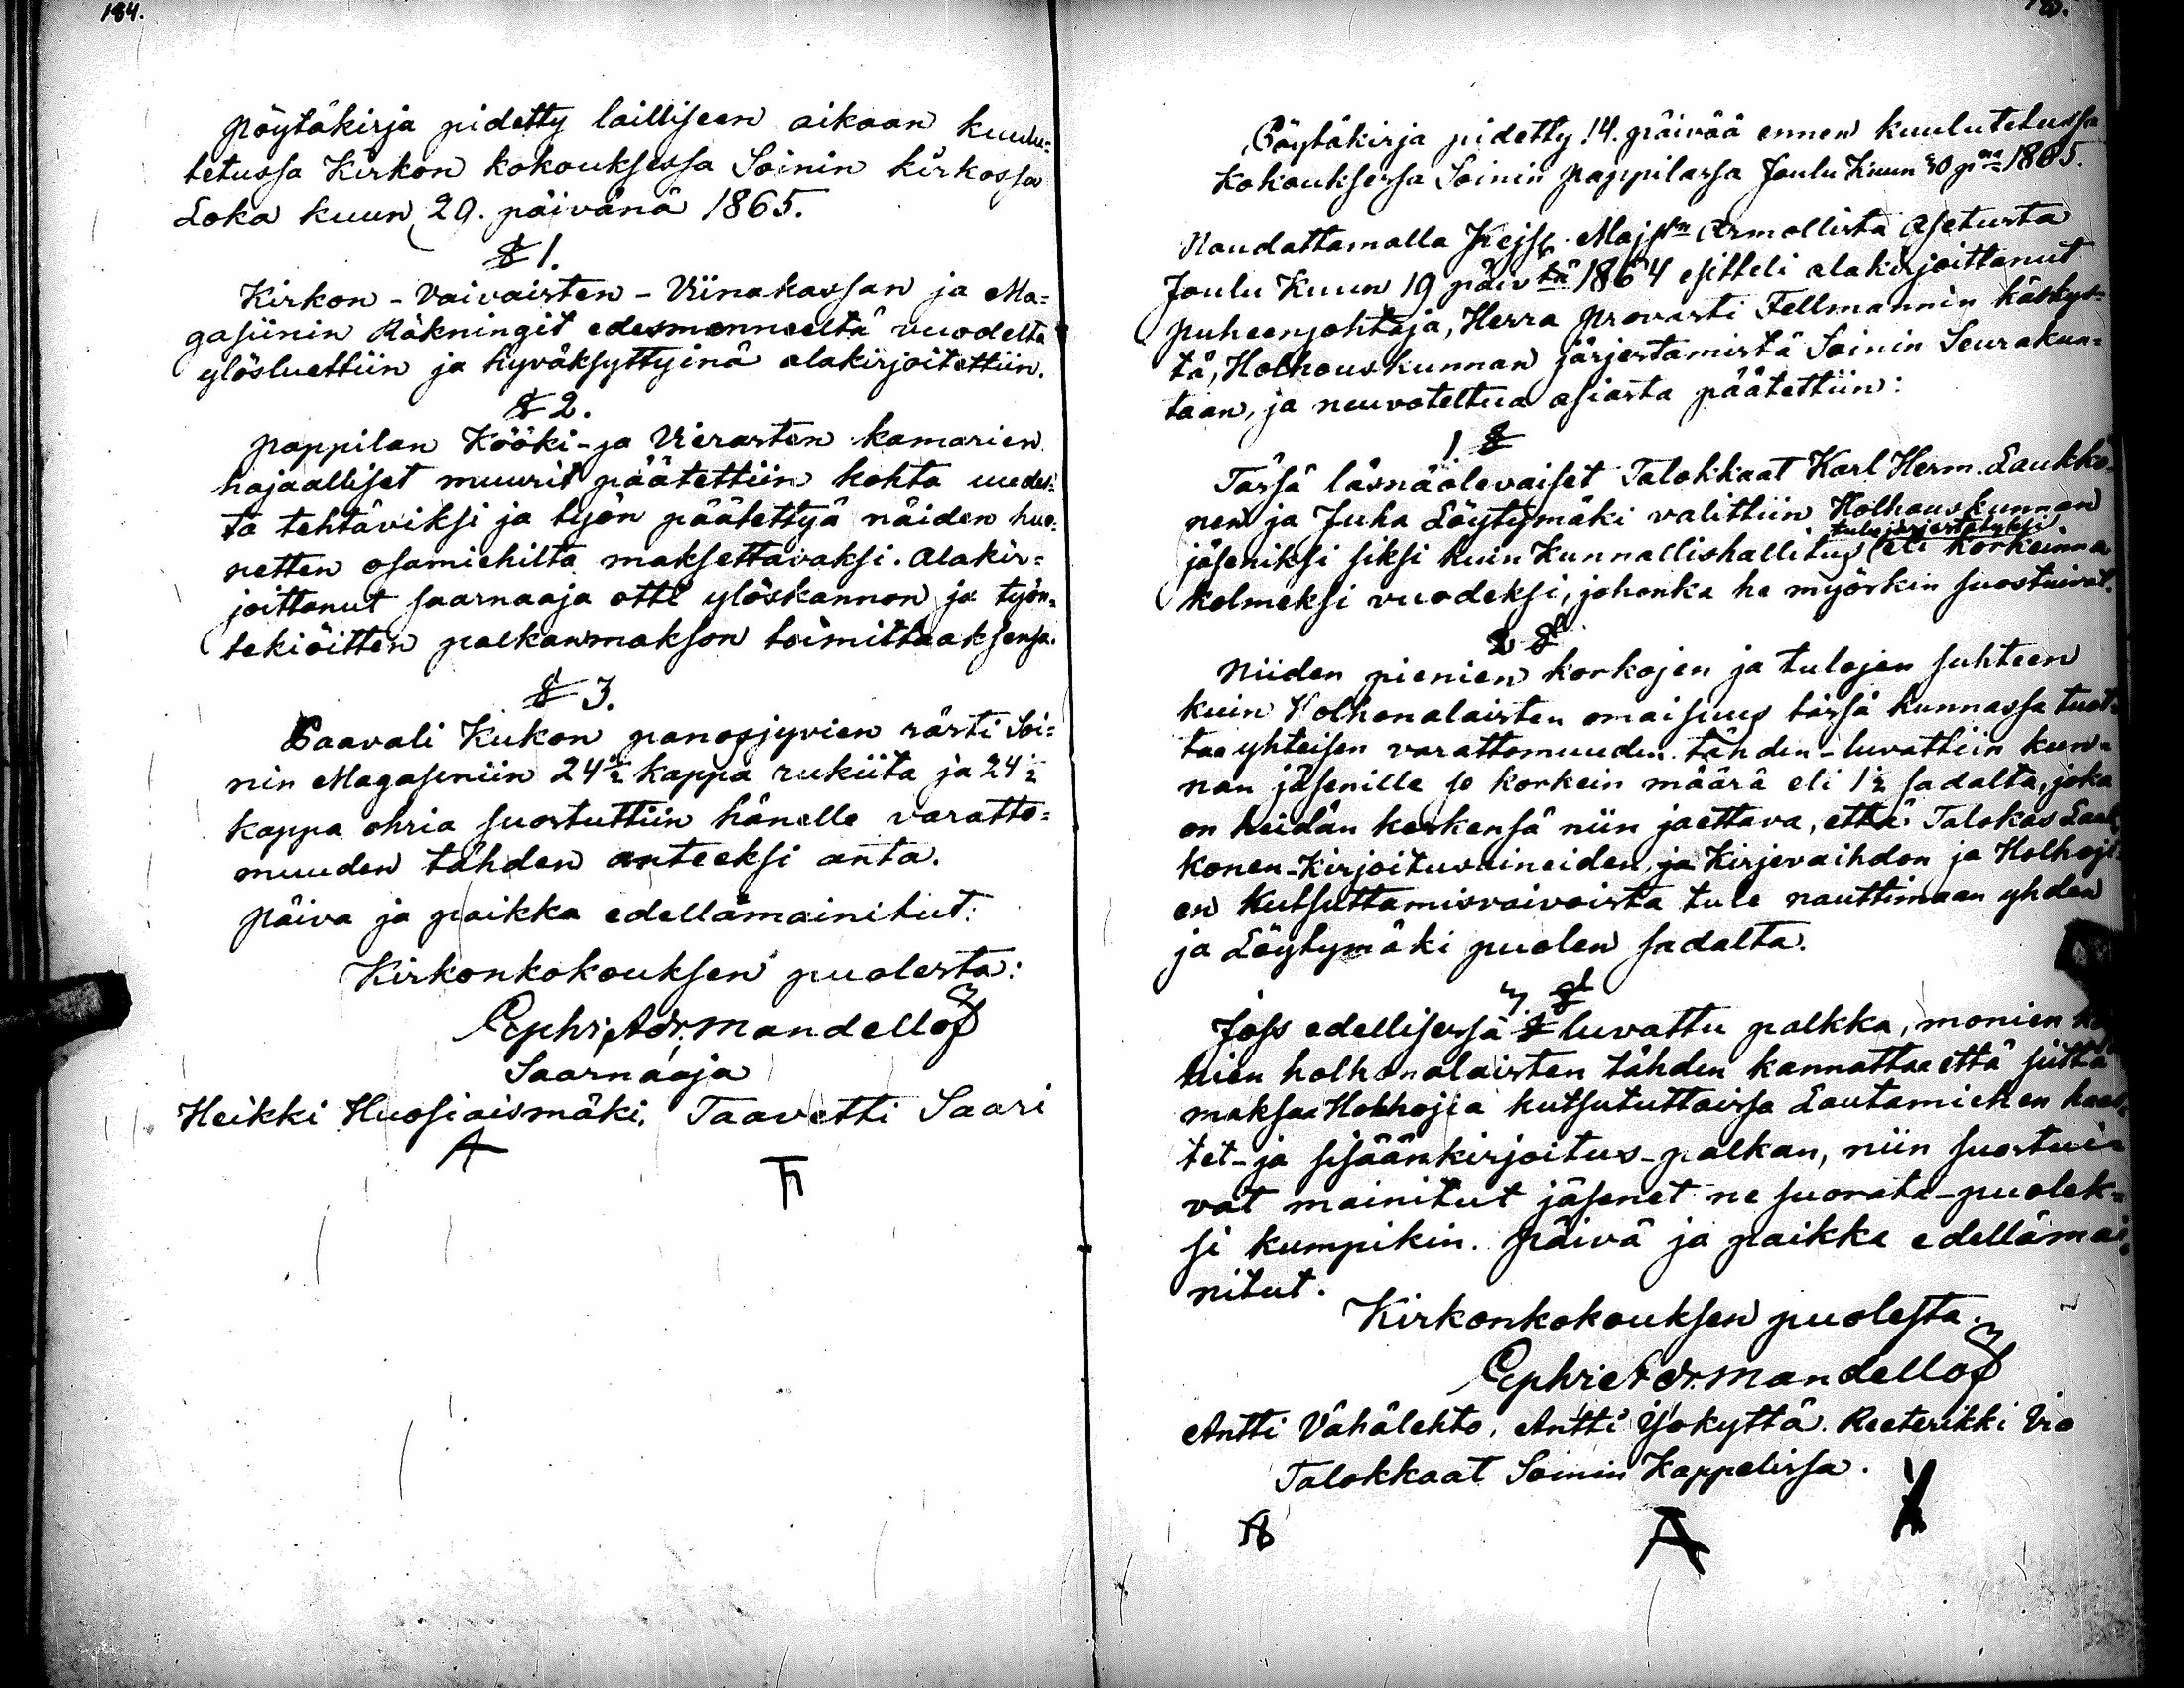 184.
Pöytäkirja pidetty lailliseen aikaan kuulu=
tetussa Kirkon kokouksessa Soinin kirkossa
Loka kuun 29. päivänä 1865.
§ 1.
Kirkon - Vaivaisten - Viinakassan ja Ma=
gasiinin Räkningit edesmenneeltä vuodelta
ylösluettiin ja hyväksyttyinä alakirjoitettiin.
§ 2.
Pappilan Kööki- ja Vierasten kamarien
hajaalliset muurit päätettiin kohta uudes=
ta tehtäviksi ja työn päätettyä näiden huo=
netten osamiehiltä maksettavaksi. Alakir=
joittanut saarnaaja otti ylöskannon ja työn=
tekiöitten palkanmakson toimittaaksensa.
§ 3.
Paavali Kukon panosjyvien rästi Soi=
nin Magaseniin 24 1/2 kappa rukiita ja 24 1/2
kappa ohria suostuttiin hänelle varatto=
muuden tähden anteeksi anta.
Päivä ja paikka edellämainitut:
Kirkonkokouksen puolesta:
Ephr. Adr. Mandellöf
Saarnaaja
Heikki Huosiaismäki, Taavetti Saari
Pöytäkirja pidetty 14. päivää ennen kuulutetussa
Kokouksessa Soinin Pappilassa Joulu Kuun 30 pnä 1865.
Noudattamalla Kejs. Majstn Armollista Asetusta
Joulu Kuun 19 päivtä 1864 esitteli alakirjoittanut
Puheenjohtaja, Herra Provasti Fellmannin käskys=
tä, Holhouskunnan järjestämistä Soinin Seurakun=
taan, ja neuvoteltua asiasta päätettiin:
1 §
Tässä läsnäolevaiset Talokkaat Karl Herm. Laukko=
nen ja Juha Löytymäki valittiin Holhouskunnan
tule järjestetyksi
jäseniksi siksi kuin Kunnallishallitus eli korkeinna
kolmeksi vuodeksi, johonka he myöskin suostuivat.
2 §
Niiden pienien korkojen ja tulojen suhteen
kuin Holhonalaisten omaisuus tässä kunnassa tuot=
taa yhteisen varattomuuden tähden - luvattiin kun=
nan jäsenille se korkein määrä eli 1 1/2 sadalta, joka
on heidän keskensä niin jaettava, että Talokas Lauk=
konen - Kirjoitusaineiden, ja Kirjevaihdon ja Holhoji=
en Kutsuttamisvaivoista tule nauttimaan yhden
ja Löytymäki puolen sadalta.
3 §
Joss edellisessä § luvattu palkka, monien
holhonalaisten tähden kannattaa että siitä
maksaa Holhojia kutsututtaissa Lautamiehen haas=
tet- ja sisäänkirjoitus-palkan, niin suostui=
vat mainitut jäsenet ne suorata - puolek=
si kumpikin. Päivä ja paikka edellämai=
nitut.
Kirkonkokouksen puolesta.
Ephr. Adr. Mandellöf
Antti Vähälehto, Antti Yökyttä. Reeterikki
Talokkaat Soinin Kappelissa.